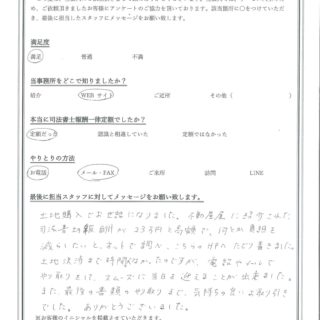 め、ご依頼頂きましたお客様にアンケートのご協力を頂いております。該当箇所に○をつけていただ
き、最後に担当したスタッフにメッセージをお願い致します。
満足度
満足 普通 不満
当事務所をどこで知りましたか?
紹介 WEBサイト ご近所 その他( )
本当に司法書士報酬一律定額でしたか?
定額だった 認識と相違していた 定額ではなかった
やりとりの方法
お電話 メール・FAX ご来所 訪問 LINE
最後に担当スタッフに対してメッセージをお願い致します。
土地購入でお世話になりました。不動産屋に紹介された
司法書士報酬が23万円と高額で、何とか費用を
減らしたいとネットで調べ、こちらのHPにたどり着きました。
土地決済まで時間がなかったのですが、電話やメールで
やり取りをして、スムーズに当日を迎えることが出来ました。
また、最後の書類のやり取りまで、気持ちの良いお取り引き
でした。ありがとうございました。
※お客様のイニシャルを掲載させていただきます。